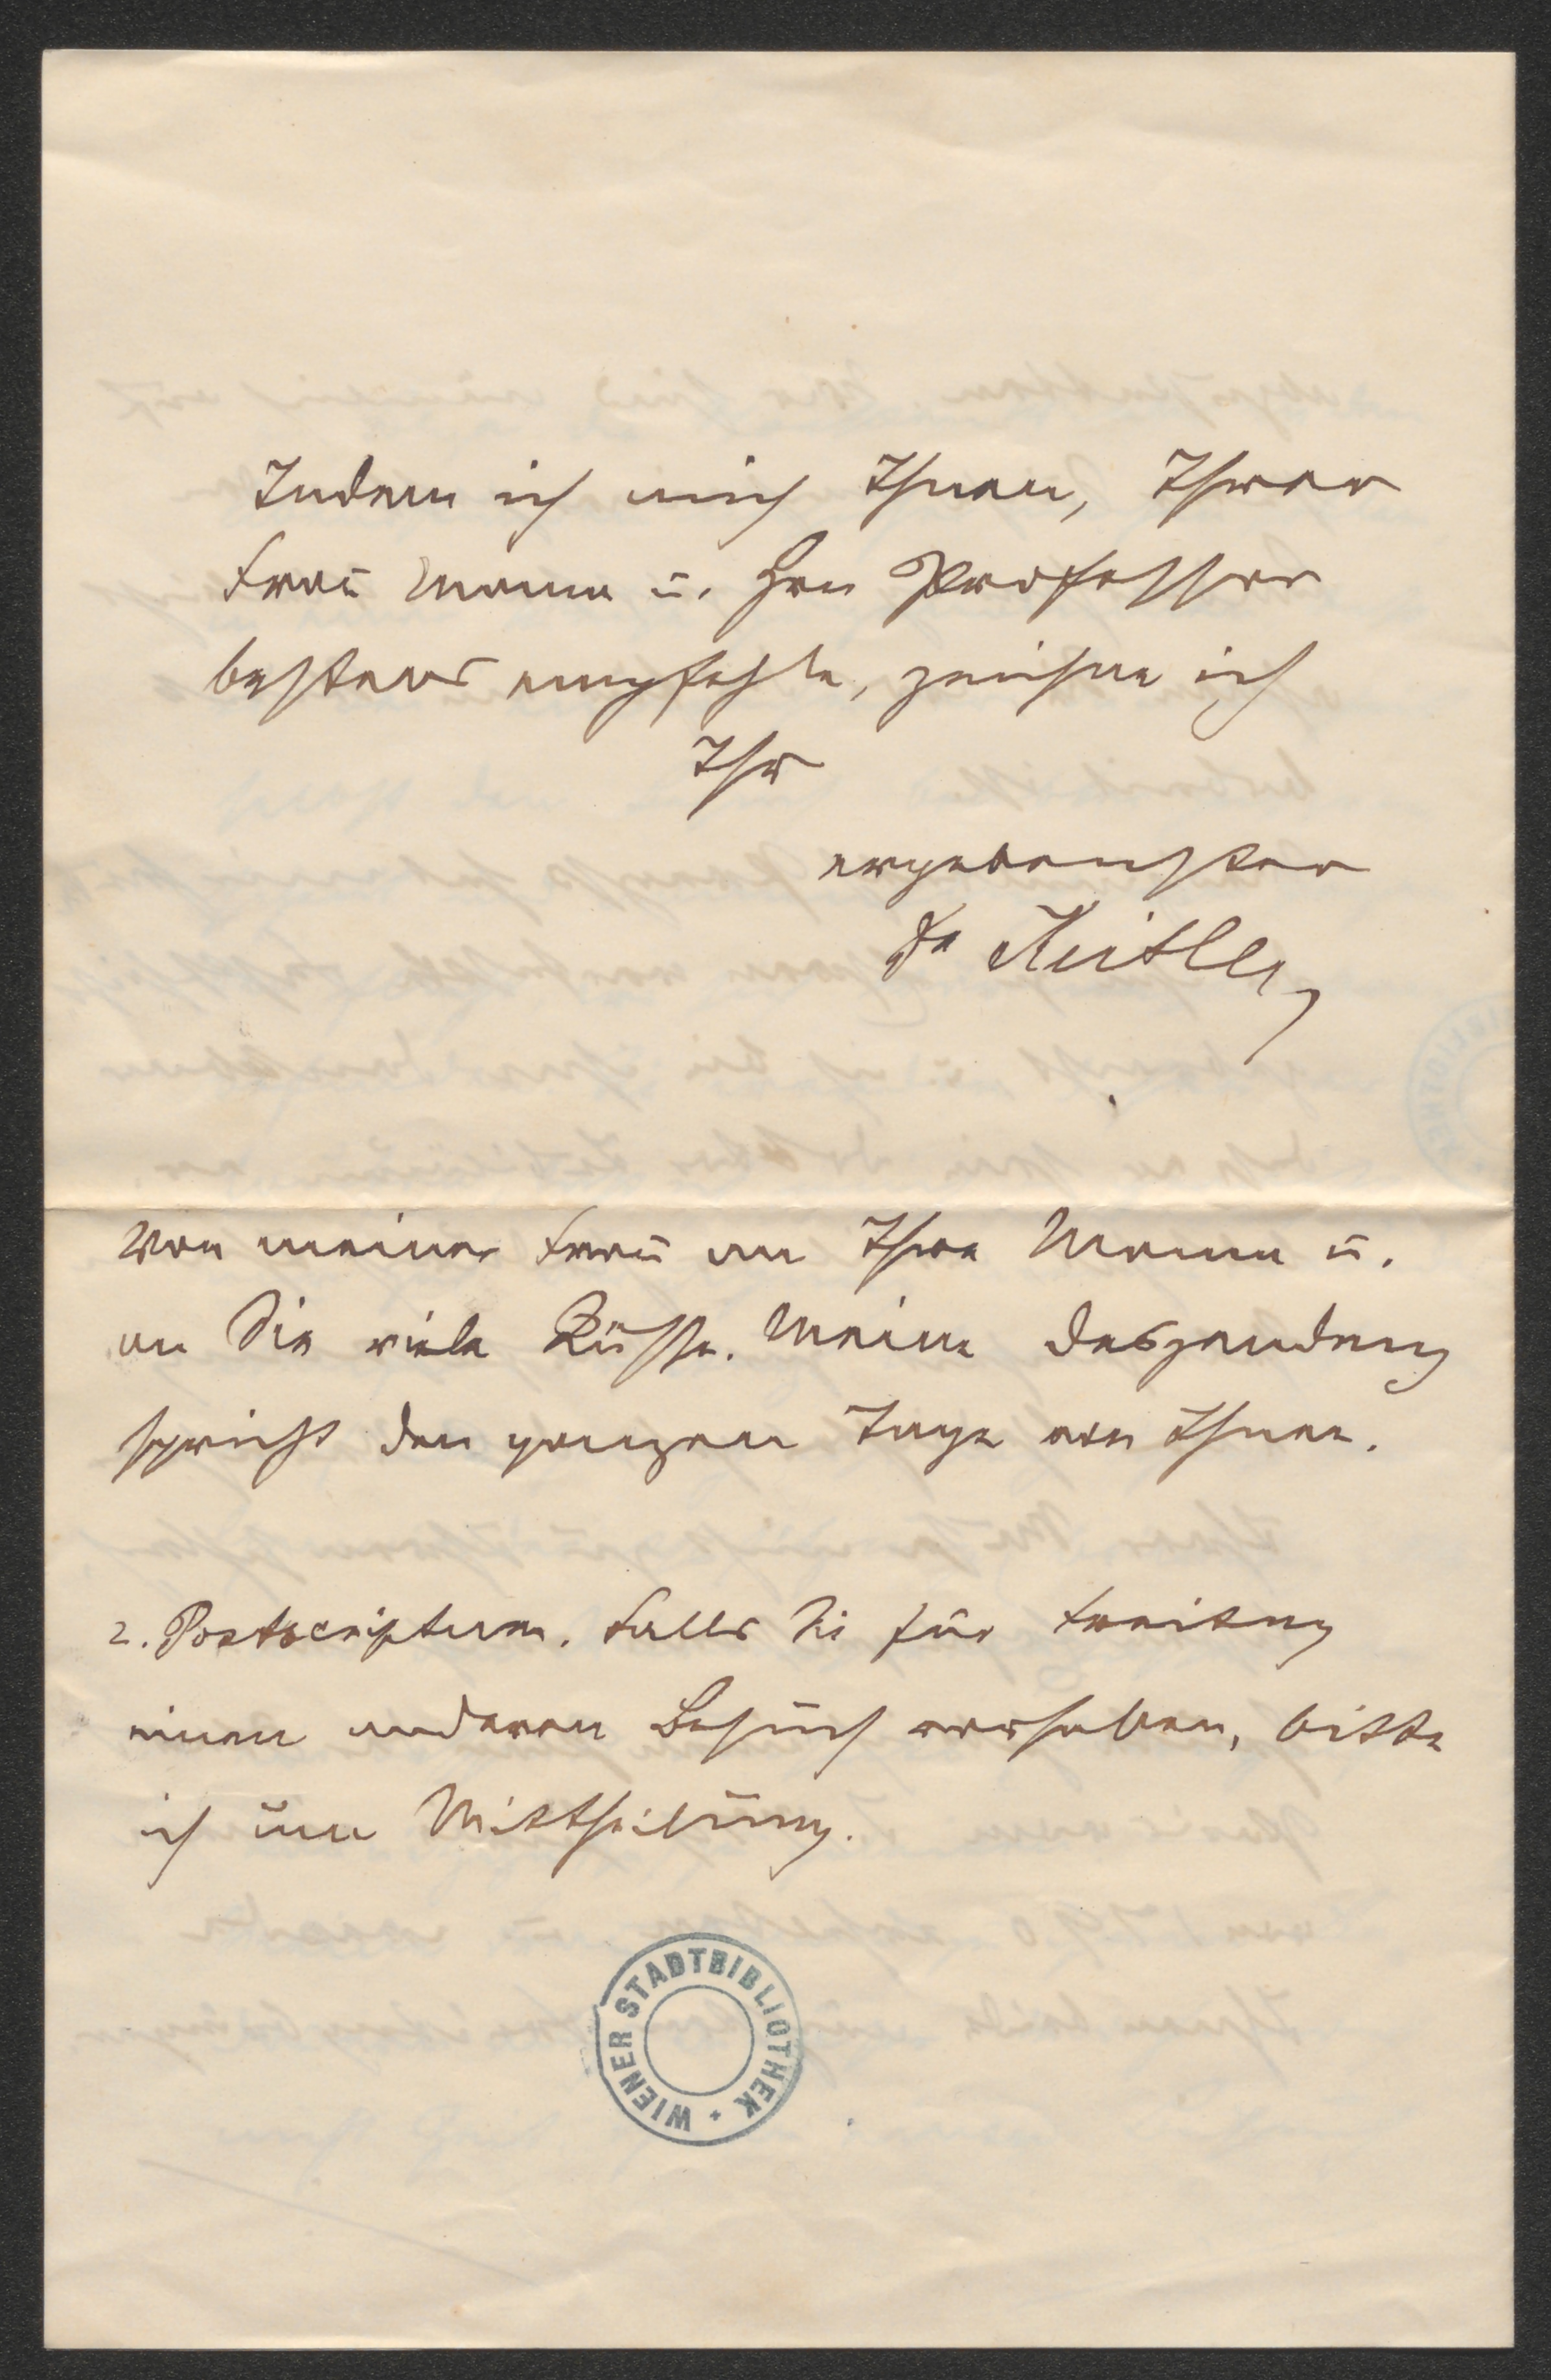 Indem ich mich Ihnen, Ihrer
Frau Mama u. Hrn Professor
bestens empfehle, zeichne ich
Ihr
ergebenster
Dr
Von meiner Frau an Ihre Mama u.
an Sie viele Küsse. Meine Deszendenz
spricht den ganzen Tage von Ihnen.
2. Postscriptum. Falls Sie für Freitag
einen anderen Besuch vorhaben, bitte
ich um Mittheilung.
WIENER STADTBIBLIOTHEK